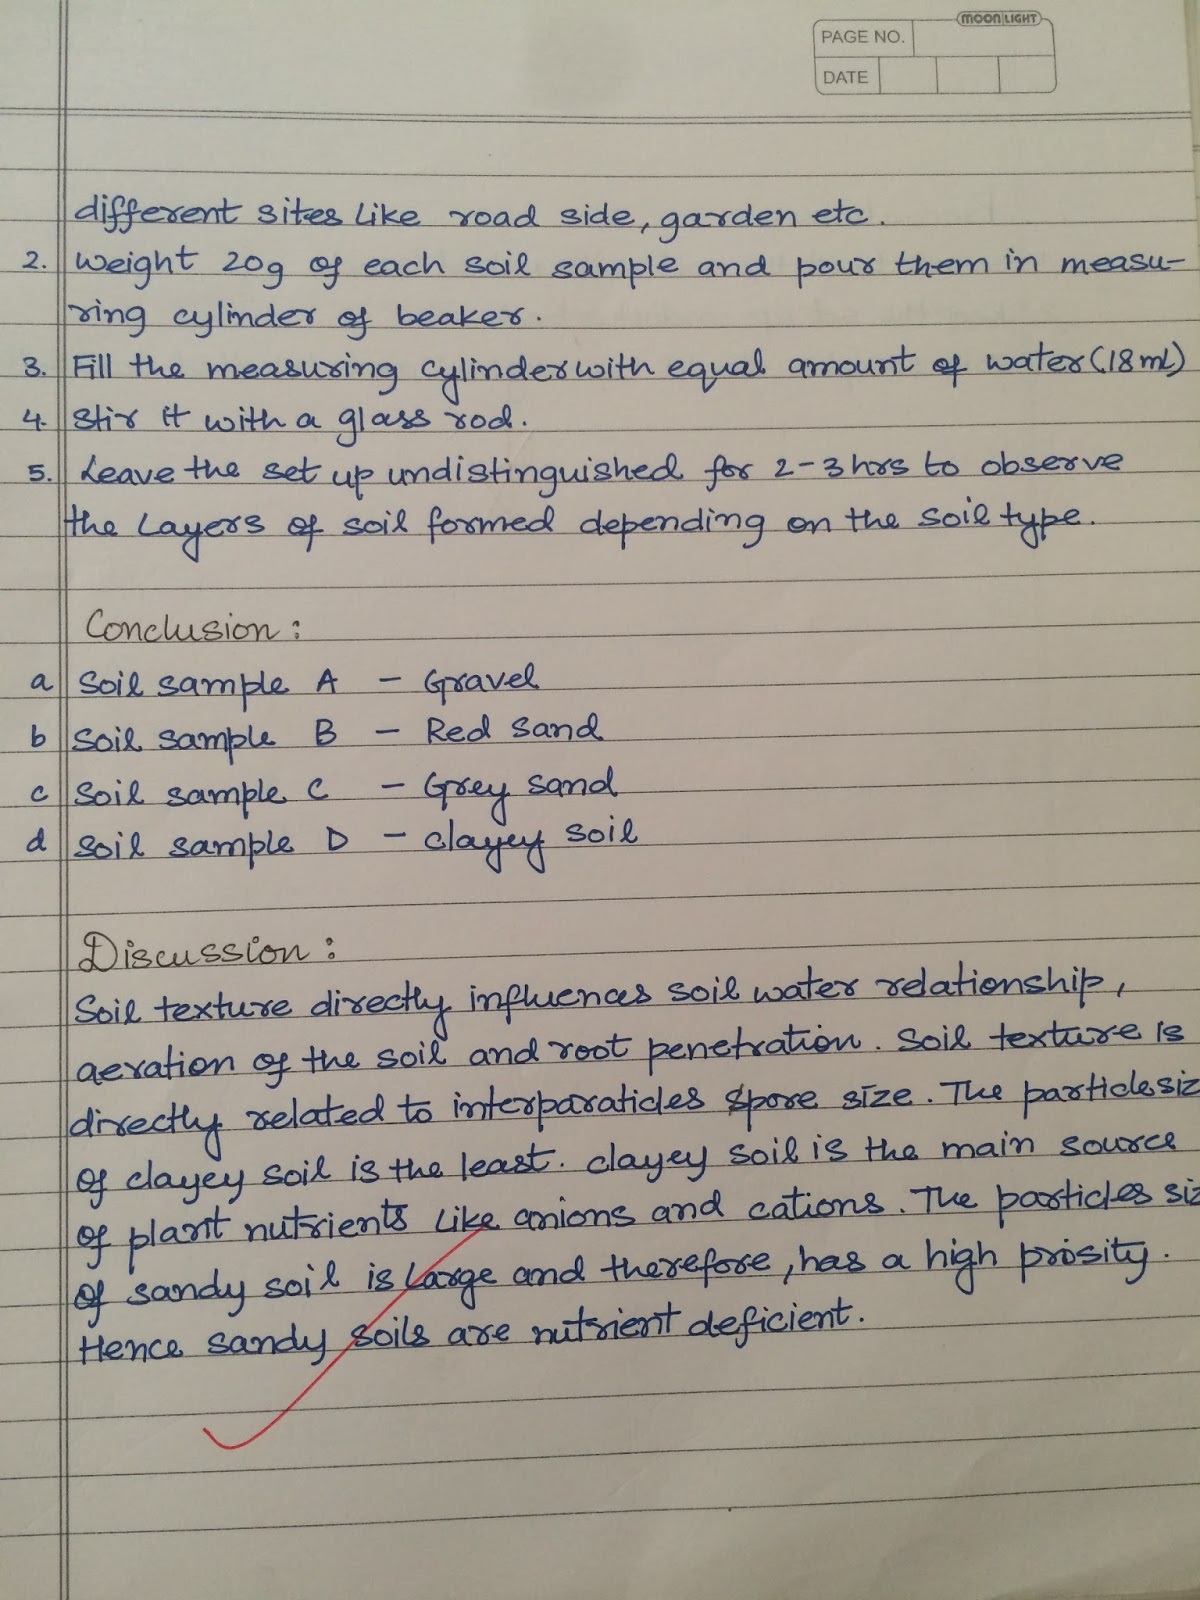 MOONLIGHT
PAGE NO.
DATE
different sites like road side, garden etc.
2. Weight 20g of each soil sample and pour them in measu-
ring cylinder of beaker.
3. Fill the measuring cylinder with equal amount of water (18ml)
4. Stir it with a glass rod.
5. Leave the set up undistinguished for 2-3hrs to observe
the layers of soil formed depending on the soil type.
Conclusion :
a Soil sample A - Gravel
b Soil sample B - Red Sand
c Soil sample C - Grey sand
d Soil sample D - clayey soil
Discussion :
Soil texture directly influences soil water relationship,
aeration of the soil and root penetration. Soil texture is
directly related to interparaticles spore size. The particle siz
of clayey soil is the least. clayey soil is the main source
of plant nutrients like anions and cations. The particles siz
of sandy soil is large and therefore, has a high prosity.
Hence sandy soils are nutrient deficient.